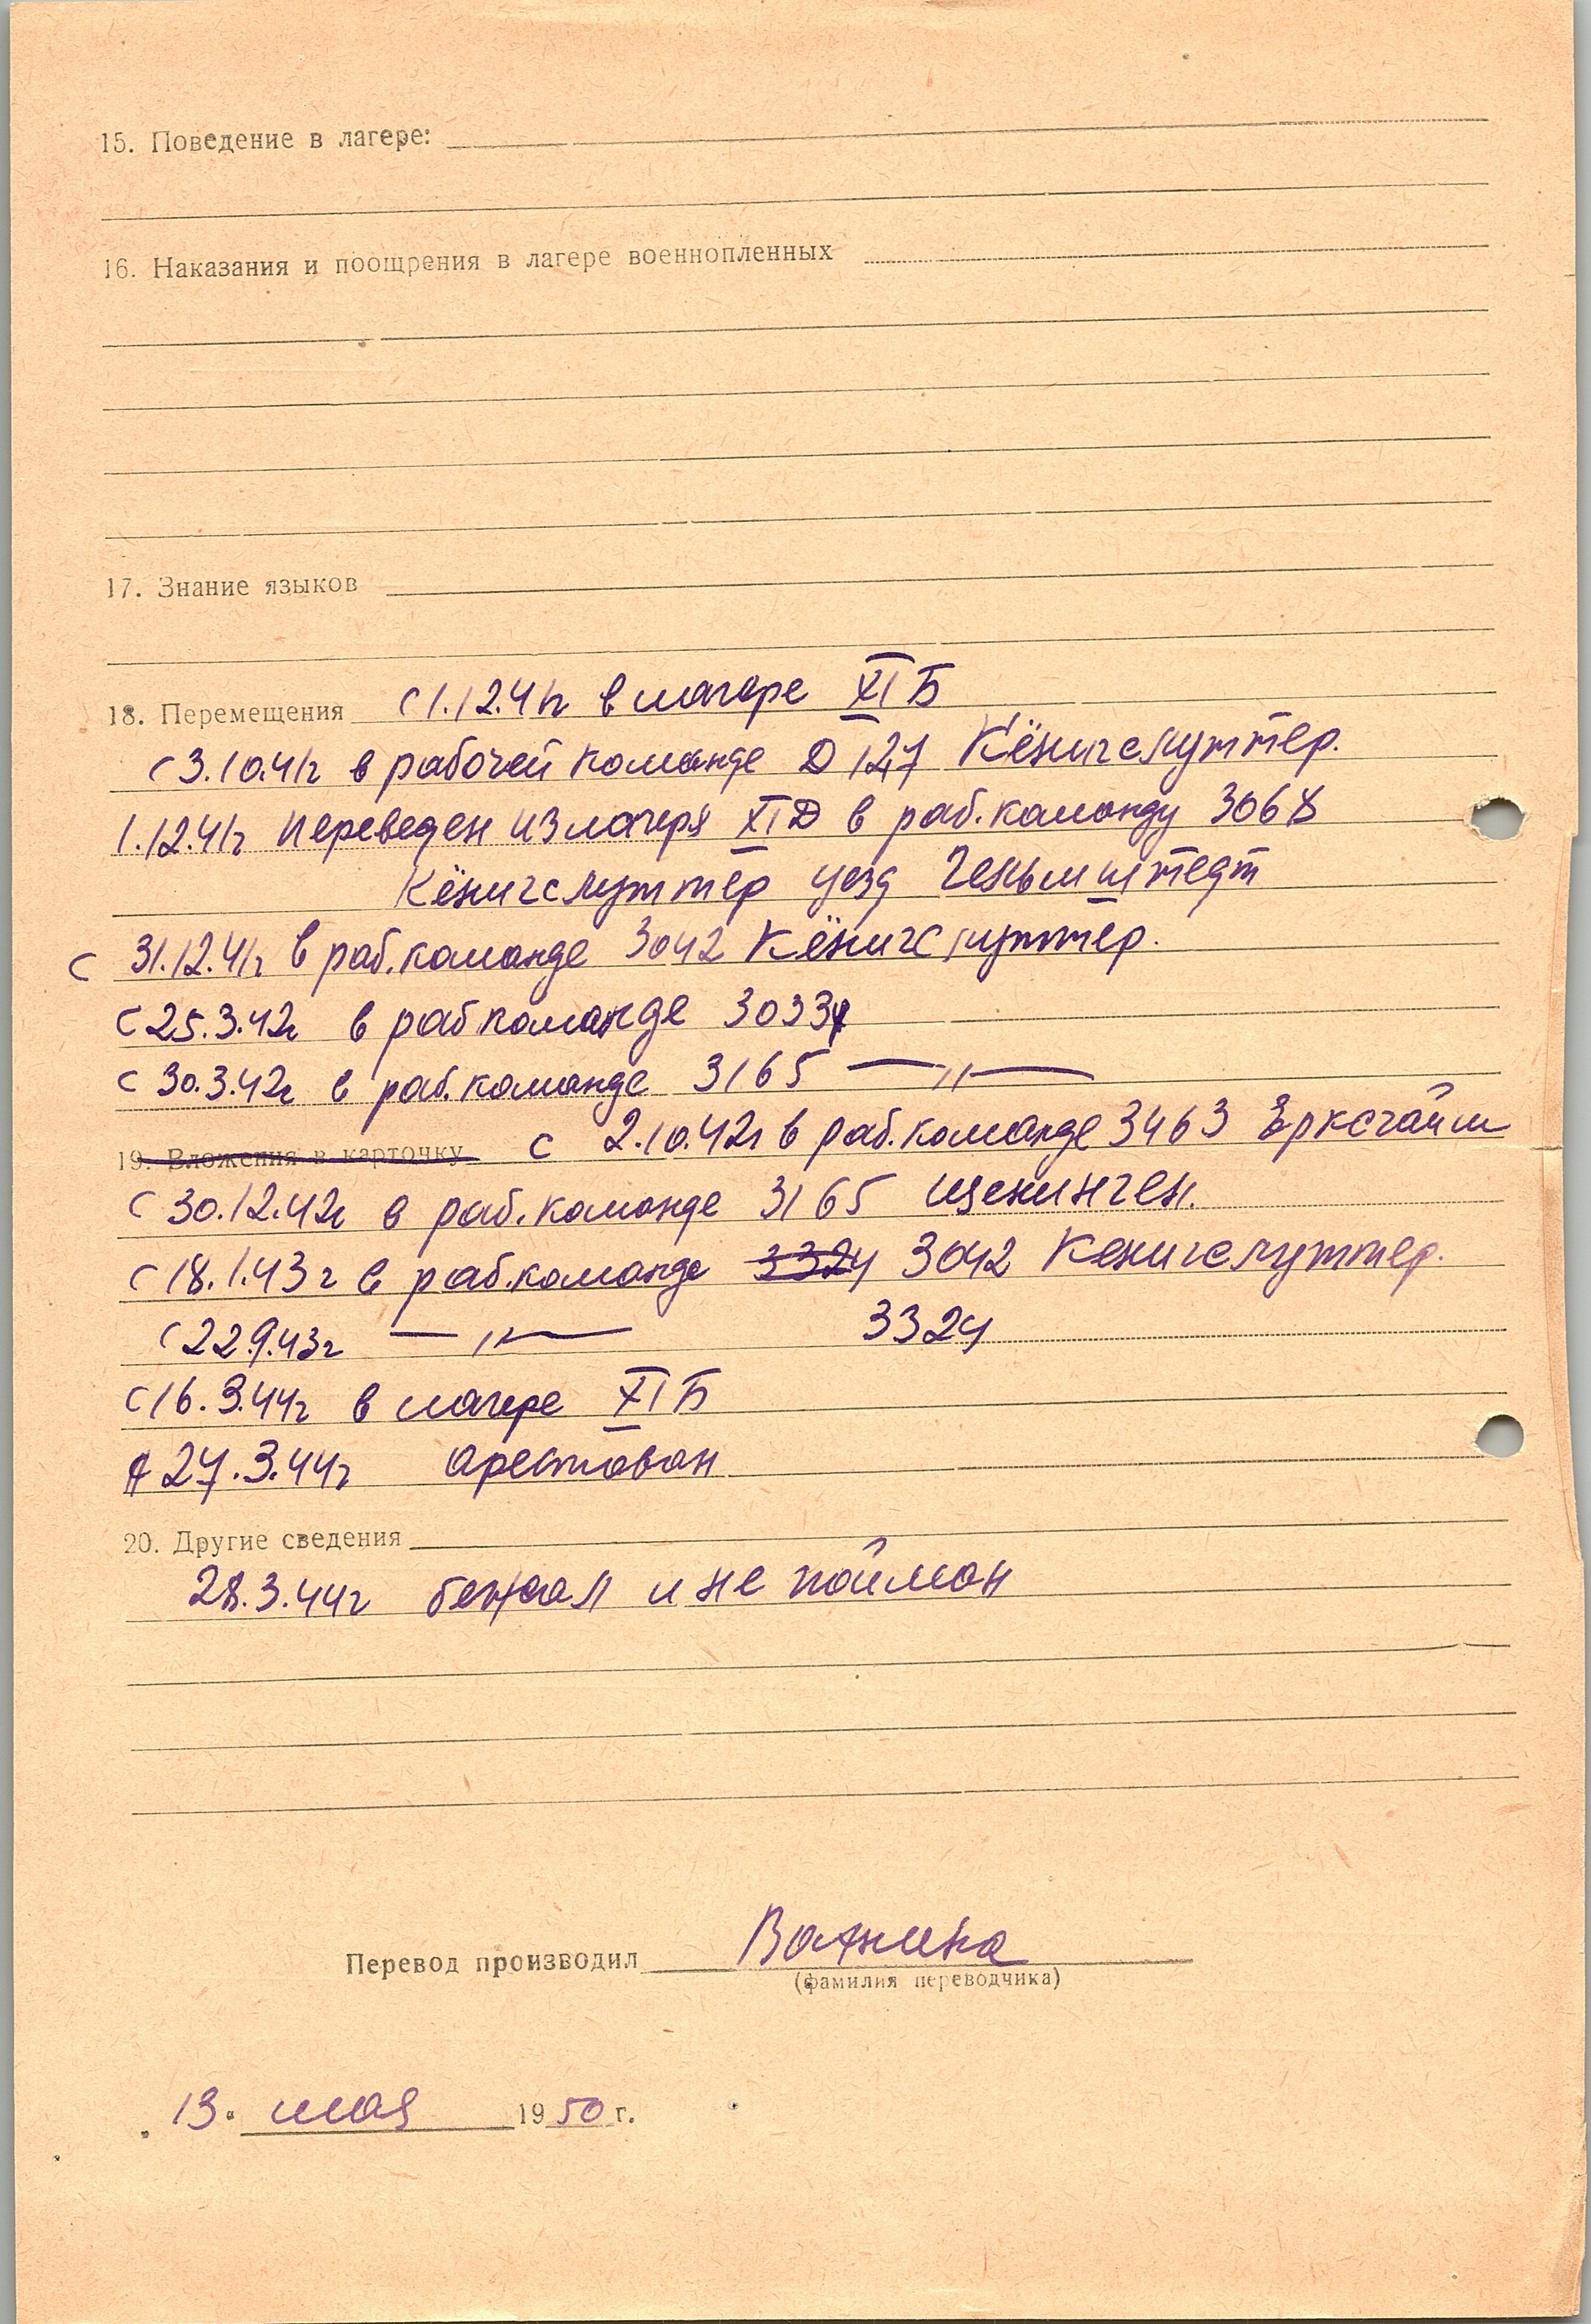 15. Поведение в лагере:
16. Наказания и поощрения в лагере военнопленных
17. Знание языков
18. Перемещения с 1.12.41г в лагере XI Б
с 3.10.41г в рабочей команде Д 127 Кёнигслуттер.
1.12.41г переведен из лагеря XI Д в раб. команду 3068
Кёнигслуттер уезд Гельмштедт
с 31.12.41г в раб. команде 3042 Кёнигслуттер.
с 25.3.42г в раб команде 3033
с 30.3.42г в раб. команде 3165 —〃—
19. Вложения в карточку с 2.10.42г в раб. команде 3463 Ерксгайм
с 30.12.42г в раб. команде 3165 Шенинген.
с 18.1.43г в раб. команде 3324 3042 Кенигслуттер.
с 22.9.43г —〃— 3324
с 16.3.44г в лагере XI Б
27.3.44г арестован
20. Другие сведения
28.3.44г бежал и не пойман
Перевод производил Важнина
(фамилия переводчика)
13. мая 1950 г.